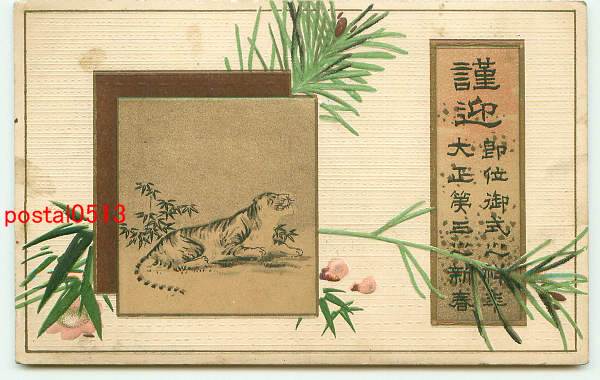 謹迎
即位御式之佳年
大正第三新春
postal0513